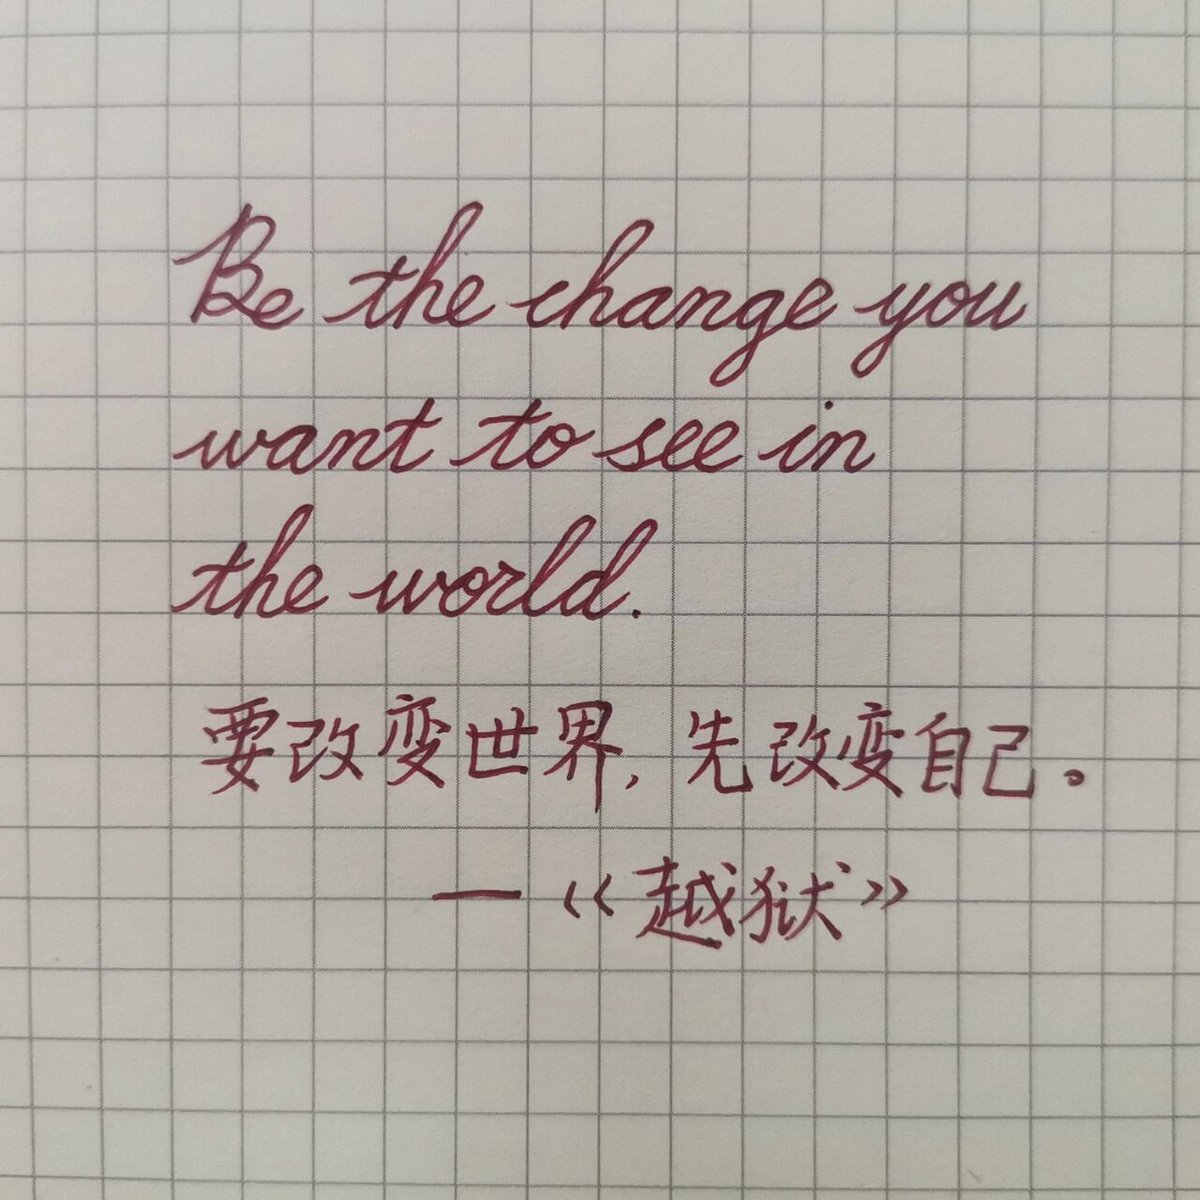 Be the change you
want to see in
the world.
要改变世界,先改变自己。
—《越狱》